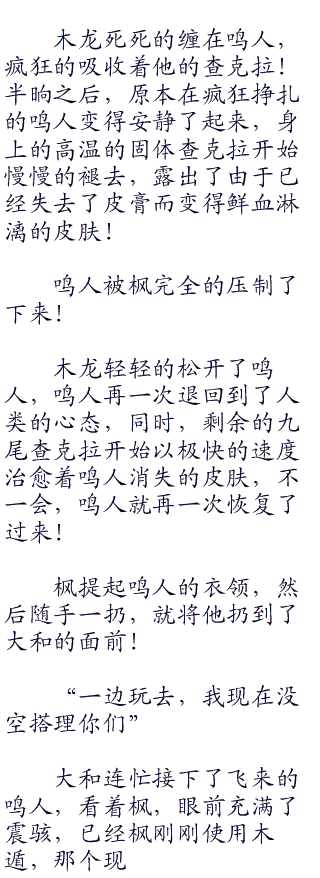 木龙死死的缠在鸣人，
疯狂的吸收着他的查克拉！
半晌之后，原本在疯狂挣扎
的鸣人变得安静了起来，身
上的高温的固体查克拉开始
慢慢的褪去，露出了由于已
经失去了皮膏而变得鲜血淋
漓的皮肤！
鸣人被枫完全的压制了
下来！
木龙轻轻的松开了鸣
人，鸣人再一次退回到了人
类的心态，同时，剩余的九
尾查克拉开始以极快的速度
治愈着鸣人消失的皮肤，不
一会，鸣人就再一次恢复了
过来！
枫提起鸣人的衣领，然
后随手一扔，就将他扔到了
大和的面前！
“一边玩去，我现在没
空搭理你们”
大和连忙接下了飞来的
鸣人，看着枫，眼前充满了
震骇，已经枫刚刚使用木
遁，那个现